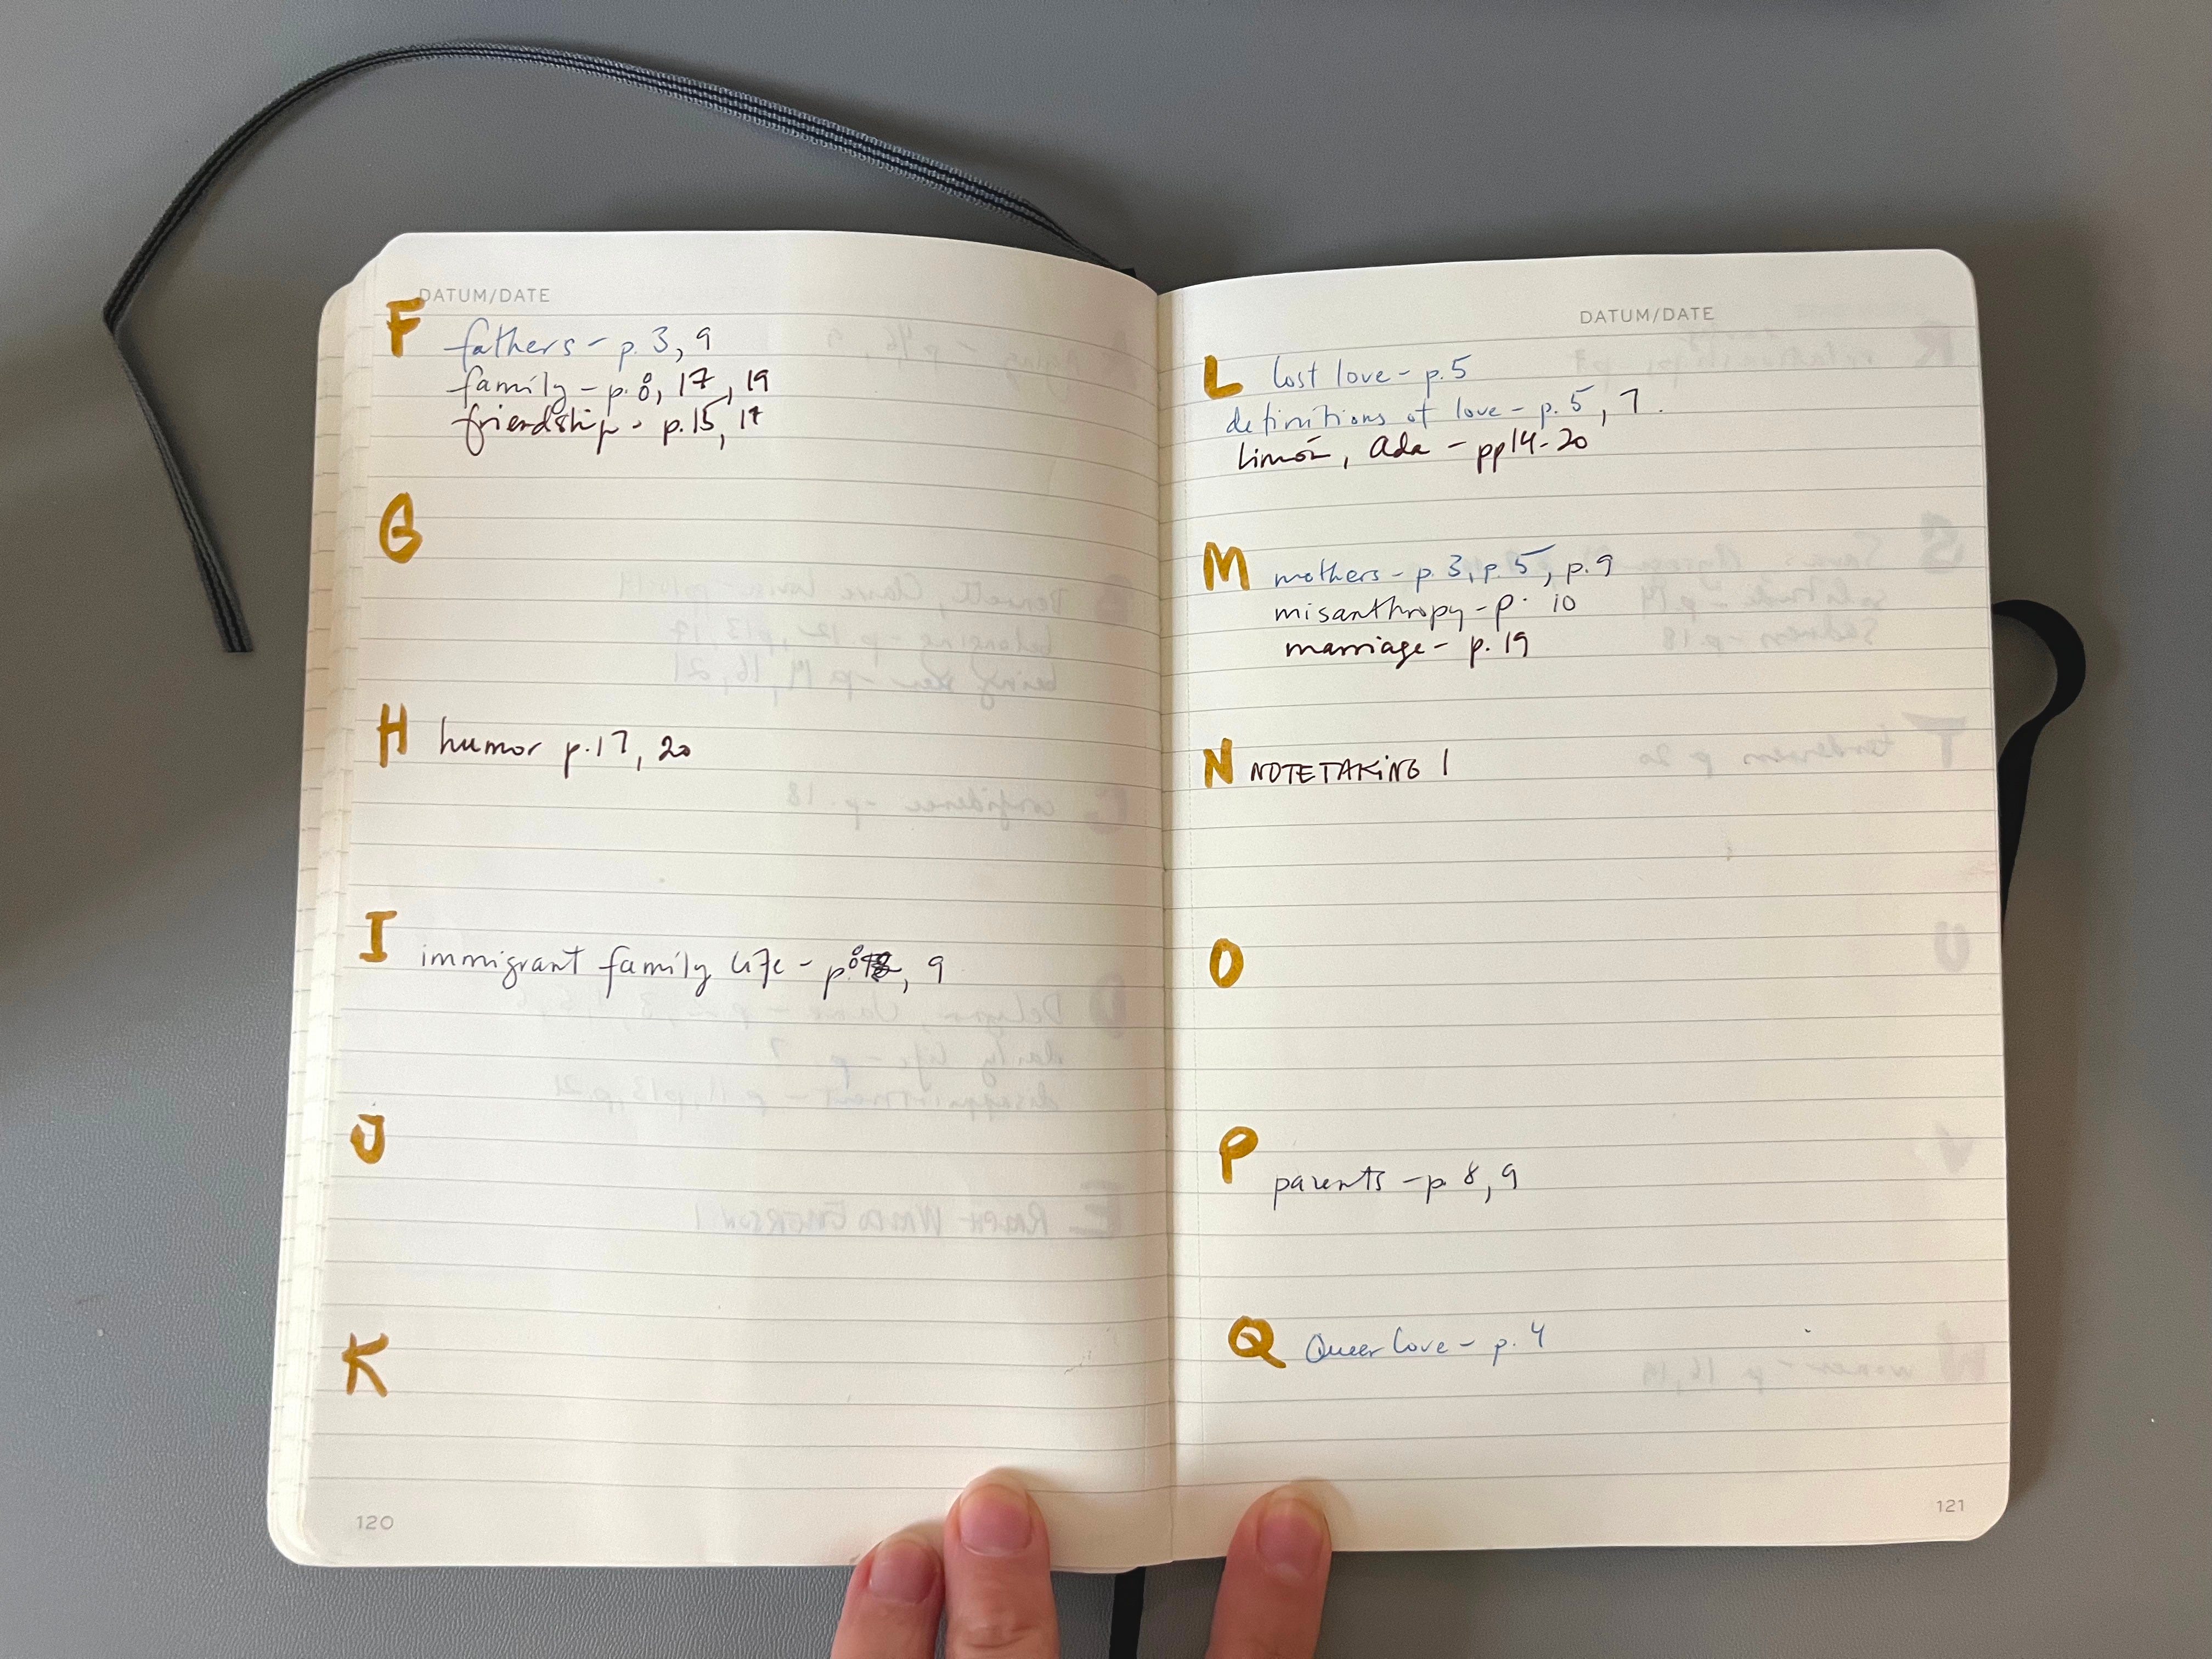 DATUM/DATE
F
fathers - p. 3, 9
family - p. 8, 17, 19
friendship - p. 15, 17
G
H humor p. 17, 20
I immigrant family life - p. 8, 9
J
K
120
DATUM/DATE
L lost love - p. 5
definitions of love - p. 5, 7.
Limón, Ada - pp 14-20
M mothers - p. 3, p. 5, p. 9
misanthropy - p. 10
marriage - p. 19
N NOTETAKING 1
O
P
parents - p. 8, 9
Q Queer love - p. 4
121